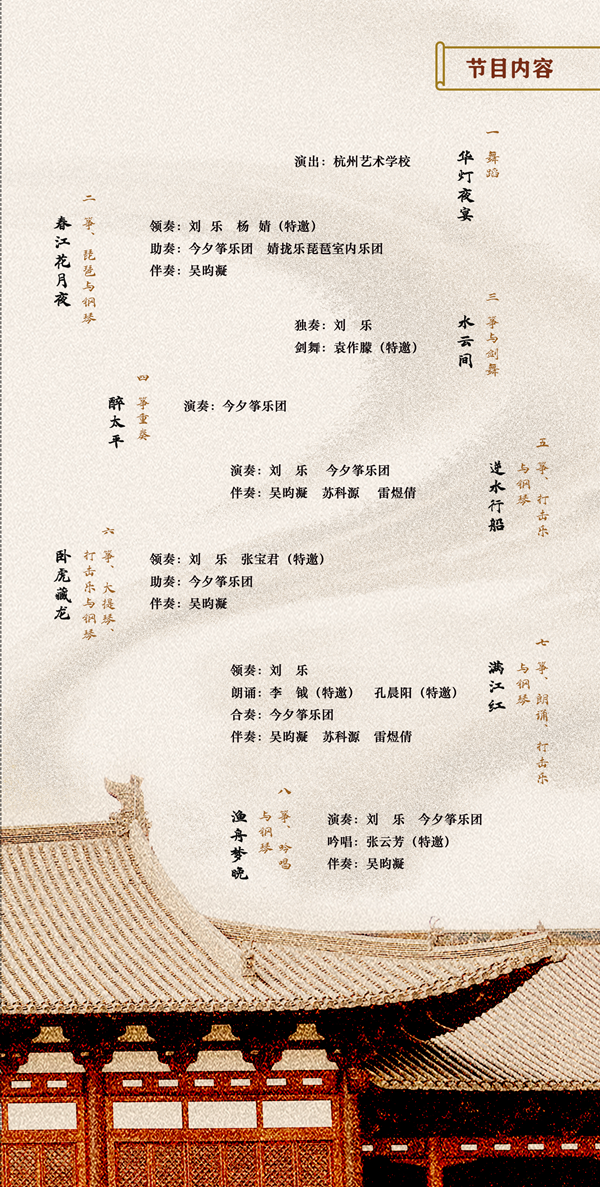 节目内容
一 舞蹈
华灯夜宴
演出：杭州艺术学校
二 筝、琵琶与钢琴
春江花月夜
领奏：刘 乐 杨 婧（特邀）
助奏：今夕筝乐团 婧拢乐琵琶室内乐团
伴奏：吴昀凝
三 筝与剑舞
水云间
独奏：刘 乐
剑舞：袁作朦（特邀）
四 筝重奏
醉太平
演奏：今夕筝乐团
五 筝、打击乐
与钢琴
逆水行船
演奏：刘 乐 今夕筝乐团
伴奏：吴昀凝 苏科源 雷煜倩
六 筝、大提琴、
打击乐与钢琴
卧虎藏龙
领奏：刘 乐 张宝君（特邀）
助奏：今夕筝乐团
伴奏：吴昀凝
七 筝、朗诵、打击乐
与钢琴
满江红
领奏：刘 乐
朗诵：李 钺（特邀） 孔晨阳（特邀）
合奏：今夕筝乐团
伴奏：吴昀凝 苏科源 雷煜倩
八 筝、吟唱
与钢琴
渔舟梦晚
演奏：刘 乐 今夕筝乐团
吟唱：张云芳（特邀）
伴奏：吴昀凝